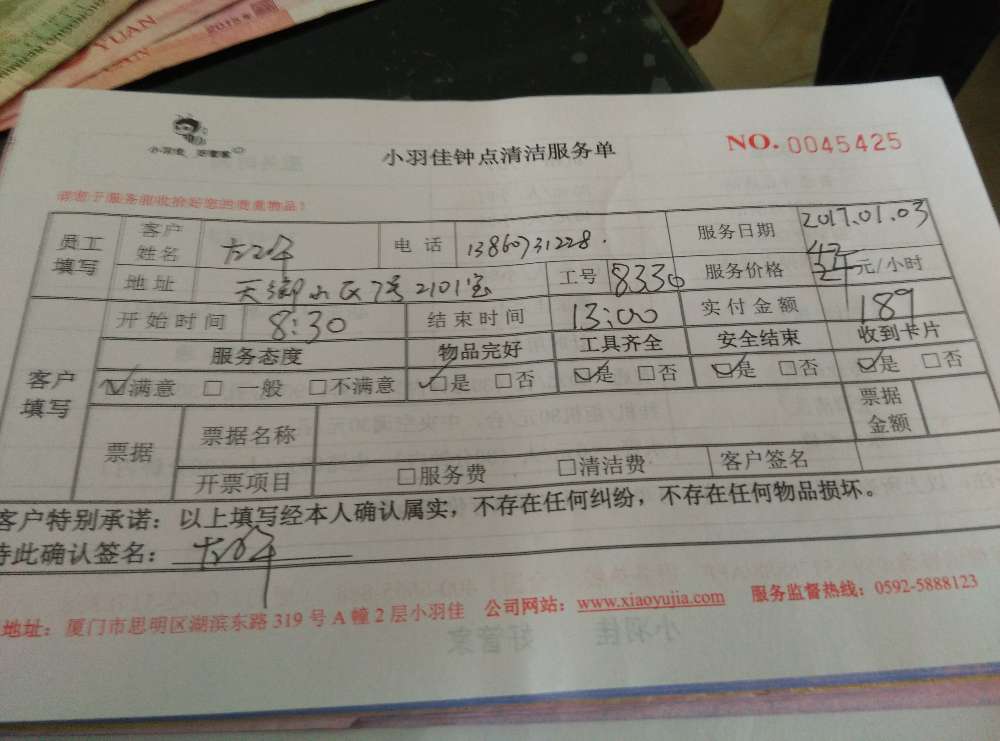 YUAN
小羽佳 好管家
小羽佳钟点清洁服务单
NO. 0045425
请您于服务前收拾好您的贵重物品！
员工填写 客户姓名 电话 13860731228. 服务日期 2017.01.03
地址 7号2101室 工号 8330 服务价格 元/小时
开始时间 8:30 结束时间 13:00 实付金额 189
客户填写 服务态度 物品完好 工具齐全 安全结束 收到卡片
☑满意 □一般 □不满意 ☑是 □否 ☑是 □否 ☑是 □否 ☑是 □否
票据 票据名称 票据金额
开票项目 □服务费 □清洁费 客户签名
客户特别承诺：以上填写经本人确认属实，不存在任何纠纷，不存在任何物品损坏。
特此确认签名：
地址：厦门市思明区湖滨东路319号A幢2层小羽佳 公司网站：www.xiaoyujia.com 服务监督热线：0592-5888123